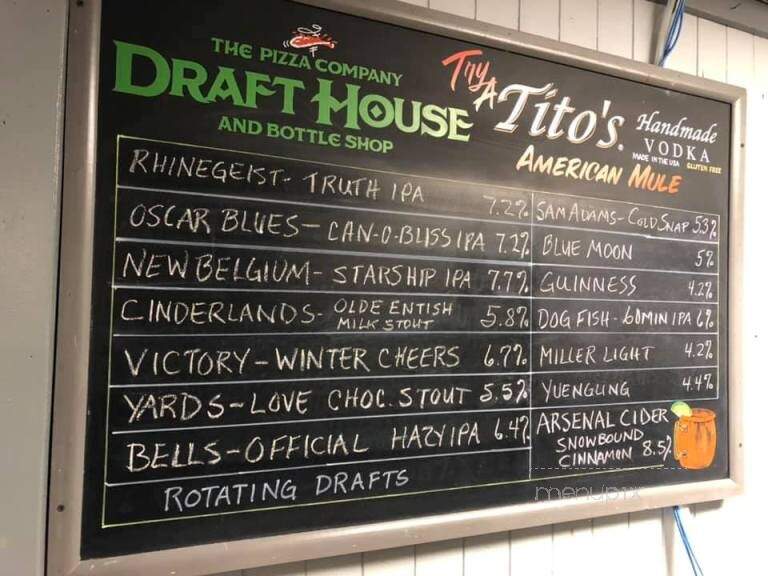 THE PIZZA COMPANY
DRAFT HOUSE
AND BOTTLE SHOP
Try
A
Tito's
Handmade
VODKA
MADE IN THE USA GLUTEN FREE
AMERICAN MULE
RHINEGEIST- TRUTH IPA 7.2%
OSCAR BLUES- CAN-O-BLISS IPA 7.2%
NEW BELGIUM- STARSHIP IPA 7.7%
CINDERLANDS- OLDE ENTISH
MILK STOUT 5.8%
VICTORY-WINTER CHEERS 6.7%
YARDS-LOVE CHOC. STOUT 5.5%
BELLS-OFFICIAL HAZY IPA 6.4%
ROTATING DRAFTS
SAM ADAMS-COLD SNAP 5.3%
BLUE MOON 5%
GUINNESS 4.2%
DOG FISH-60MIN IPA 6%
MILLER LIGHT 4.2%
YUENGLING 4.4%
ARSENAL CIDER
SNOWBOUND
CINNAMON 8.5%
menupix